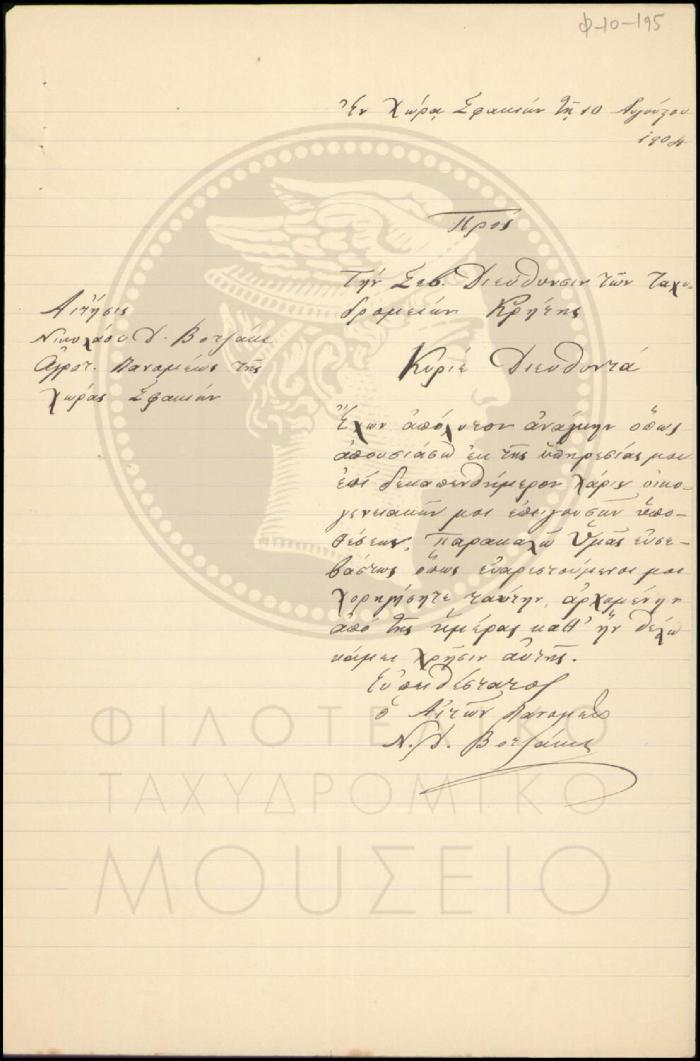 Φ-10-195
Ἐν Χώρᾳ Σφακιών τῇ 10 Αυγούστου
1904
Προς
Τὴν Σεβ. Διεύθυνσιν τῶν ταχυ-
δρομείων Κρήτης
Αιτησις
Νικολάου Δ. Βοτζάκι
Ἀγροτ. Διανομέως τῆς
Χώρας Σφακιών
Κύριε Διευθυντά
Ἔχων ἀπόλυτον ἀνάγκην ὅπως
ἀπουσιάσω ἐκ τῆς ὑπηρεσίας μου
ἐπί δεκαπενθήμερον χάριν οἰκο-
γενειακῶν μοι ἐπειγουσῶν ὑπο-
θέσεων, παρακαλῶ Ὑμᾶς εὐσε-
βάστως ὅπως εὐαριστούμενοι μοι
χορηγήσητε ταύτην, ἀρχομένην
ἀπό τῆς ἡμέρας καθ' ἣν θέλω
κάμει χρῆσιν αὐτῆς.
Εὐπειθέστατος
ὁ Αἰτῶν Διανομεύς
Ν. Δ. Βοτζάκις
ΦΙΛΟΤΕΛΙΚΟ
ΤΑΧΥΔΡΟΜΙΚΟ
ΜΟΥΣΕΙΟ